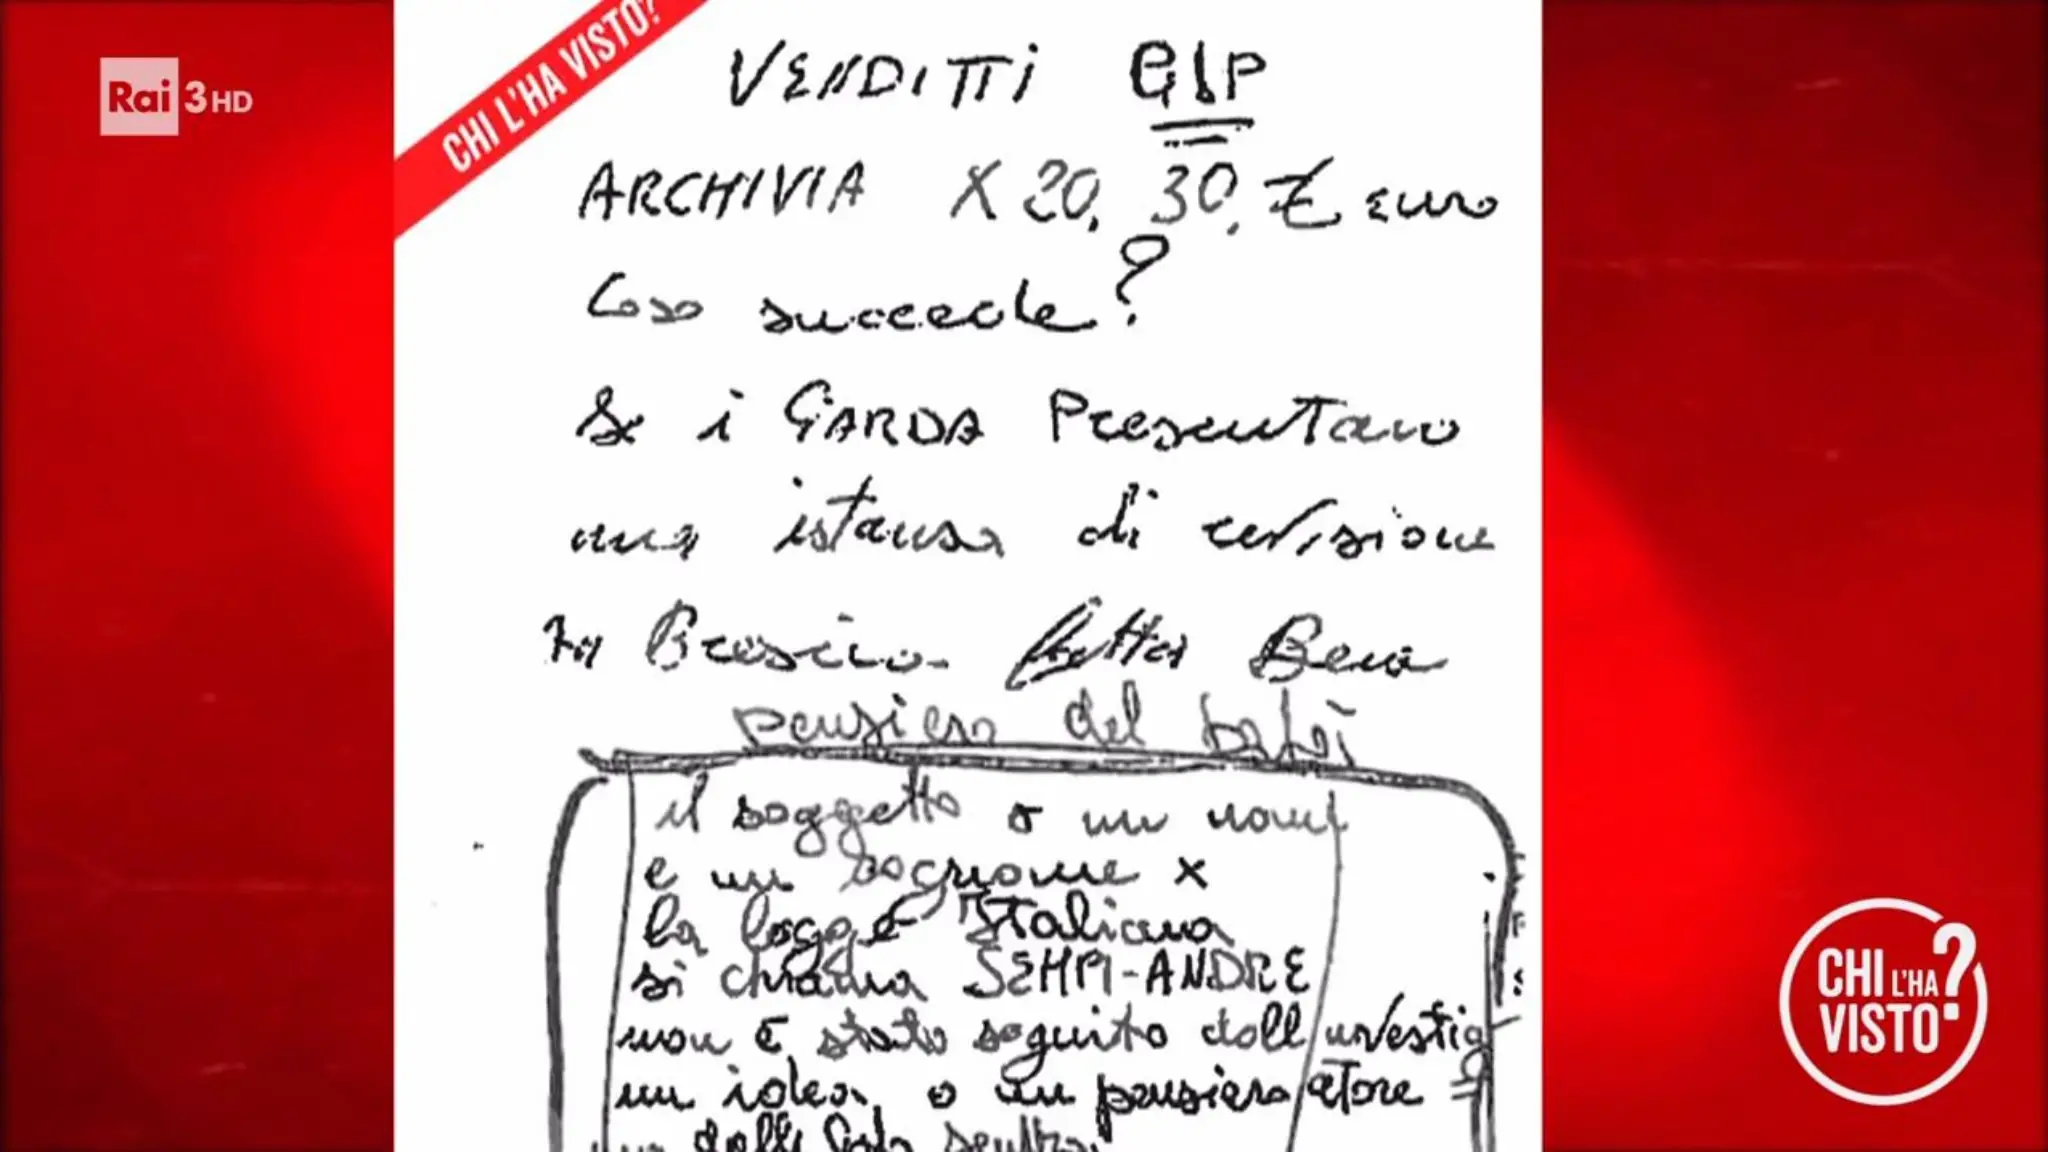 Rai 3 HD
CHI L'HA VISTO?
VENDITTI GIP
ARCHIVIA X 20. 30. € euro
Cosa succede?
Se i GARDA Presentano
una istansa di revisione
fatta Bene
pensiero del
il soggetto o un nome
e un cognome x
la legge Italiana
si chiama SEMPI-ANDRE
non è stato seguito dall investig
un idea o un pensiero atore
CHI L'HA VISTO?